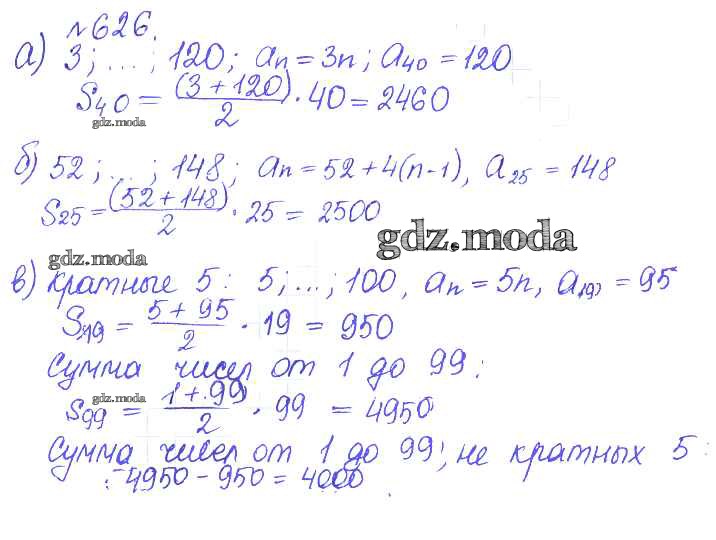 №626.
а) 3; ...; 120; an = 3n; a40 = 120
S40 = (3 + 120)/2 · 40 = 2460
gdz.moda
б) 52; ...; 148; an = 52 + 4(n-1), a25 = 148
S25 = (52 + 148)/2 · 25 = 2500
gdz.moda
gdz.moda
в) кратные 5: 5; ...; 100, an = 5n, a19 = 95
S19 = 5 + 95/2 · 19 = 950
Сумма чисел от 1 до 99:
gdz.moda
S99 = 1 + 99/2 · 99 = 4950
Сумма чисел от 1 до 99, не кратных 5:
4950 - 950 = 4000